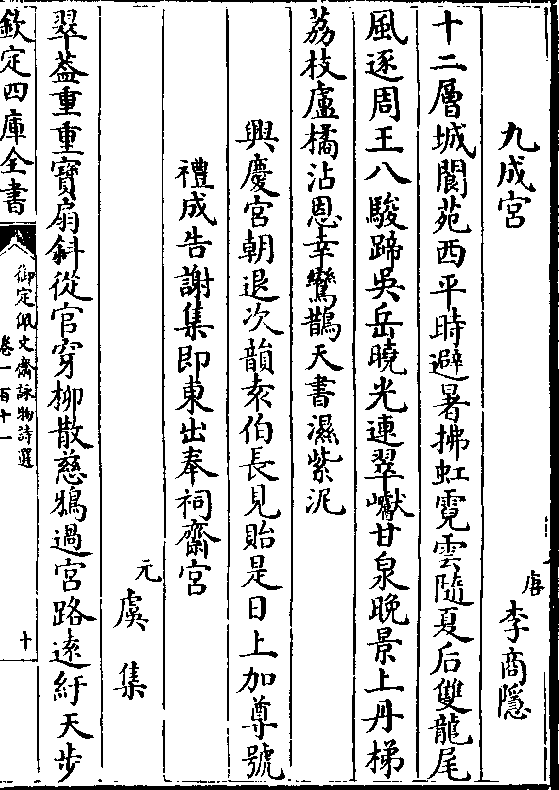 九成宫
唐 李商隱
十二層城閬苑西平時避暑拂虹霓雲隨夏后雙龍尾
風逐周王八駿蹄吳岳曉光連翠巘甘泉晚景上丹梯
荔枝盧橘沾恩幸鸞鵲天書濕紫泥
興慶宮朝退次韻袁伯長見貽是日上加尊號
禮成告謝集即東出奉祠齋宮
元 虞集
翠葢重重寶扇斜從官穿柳散慈鴉過宮路逺紆天步
欽定四庫全書
御定佩文齋詠物詩選
卷一百十一
十